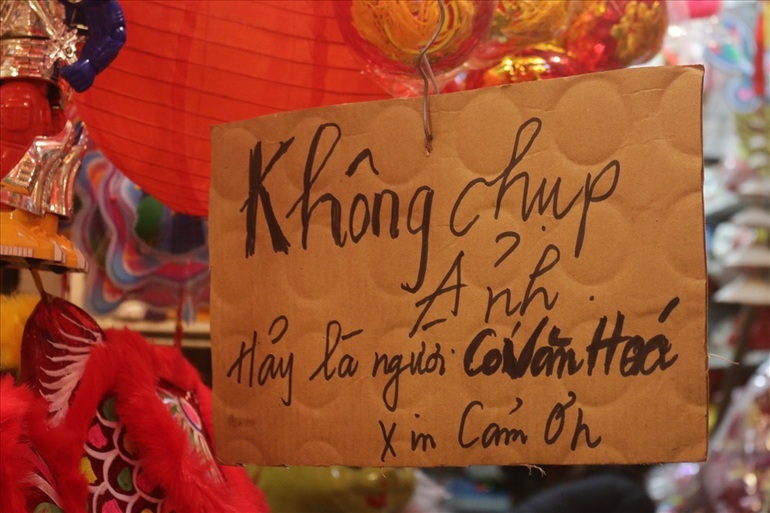 Không chụp
Ảnh.
Hảy là người Có Văn Hoá
Xin Cảm Ơn